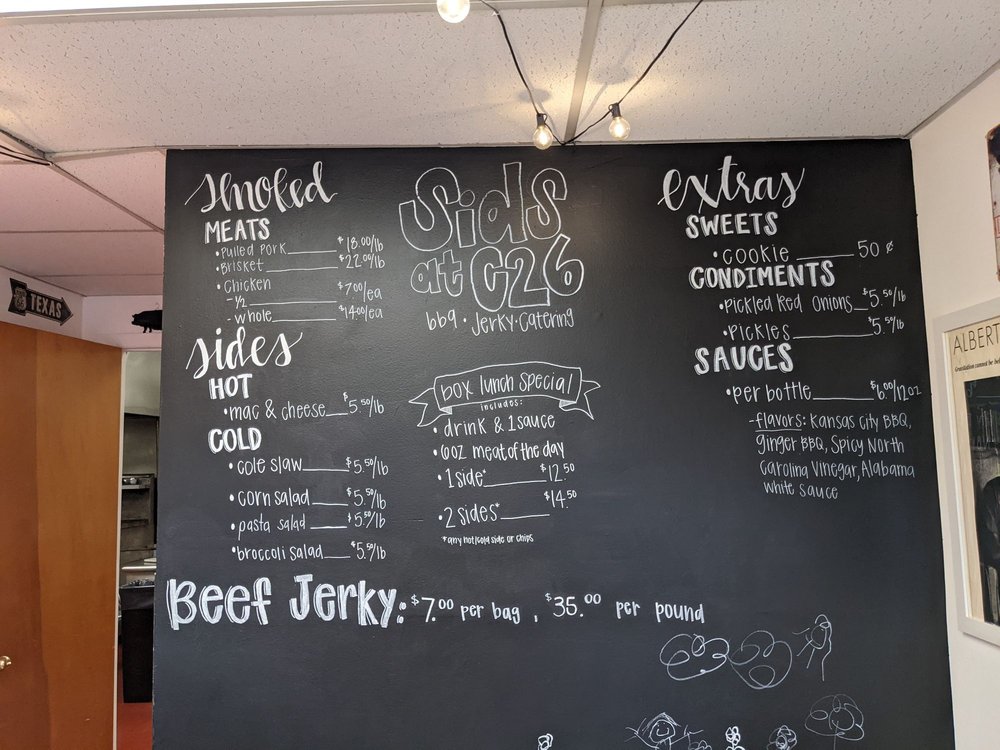 Smoked
MEATS
•Pulled Pork $18.00/lb
•Brisket $22.00/lb
•Chicken
-1/2 $7.00/ea
-whole $14.00/ea
sides
HOT
•mac & cheese $5.50/lb
COLD
•cole slaw $5.50/lb
•corn salad $5.50/lb
•pasta salad $5.50/lb
•broccoli salad $5.50/lb
Sids
at C26
bbq • Jerky • Catering
box lunch special
includes:
• drink & 1 sauce
•6oz meat of the day
•1 side* $12.50
•2 sides* $14.50
*any hot/cold side or chips
extras
SWEETS
•cookie 50 ¢
CONDIMENTS
•pickled Red Onions $5.50/lb
•pickles $5.50/lb
SAUCES
•per bottle $6.00/12oz
-flavors: Kansas City BBQ,
ginger BBQ, Spicy North
Carolina Vinegar, Alabama
white sauce
Beef Jerky: $7.00 per bag , $35.00 per pound
TEXAS
ALBERT